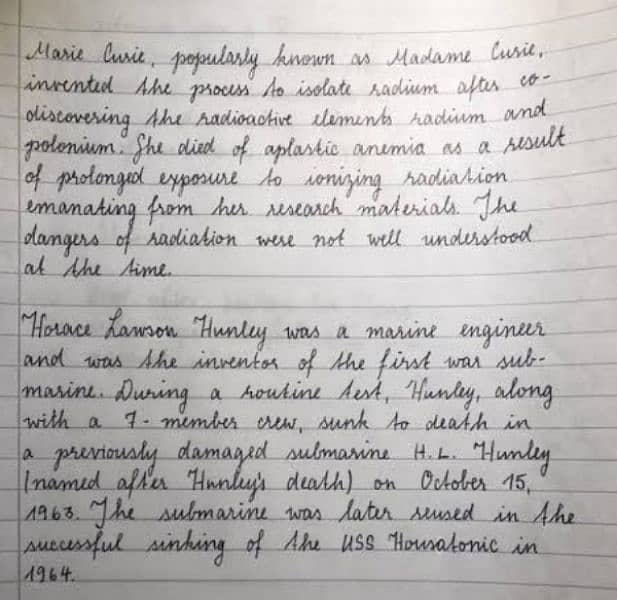 Marie Curie, popularly known as Madame Curie,
invented the process to isolate radium after co-
discovering the radioactive elements radium and
polonium. She died of aplastic anemia as a result
of prolonged exposure to ionizing radiation
emanating from her research materials. The
dangers of radiation were not well understood
at the time.
Horace Lawson Hunley was a marine engineer
and was the inventor of the first war sub-
marine. During a routine test, Hunley, along
with a 7-member crew, sunk to death in
a previously damaged submarine H.L. Hunley
(named after Hunley's death) on October 15,
1963. The submarine was later reused in the
successful sinking of the USS Housatonic in
1964.